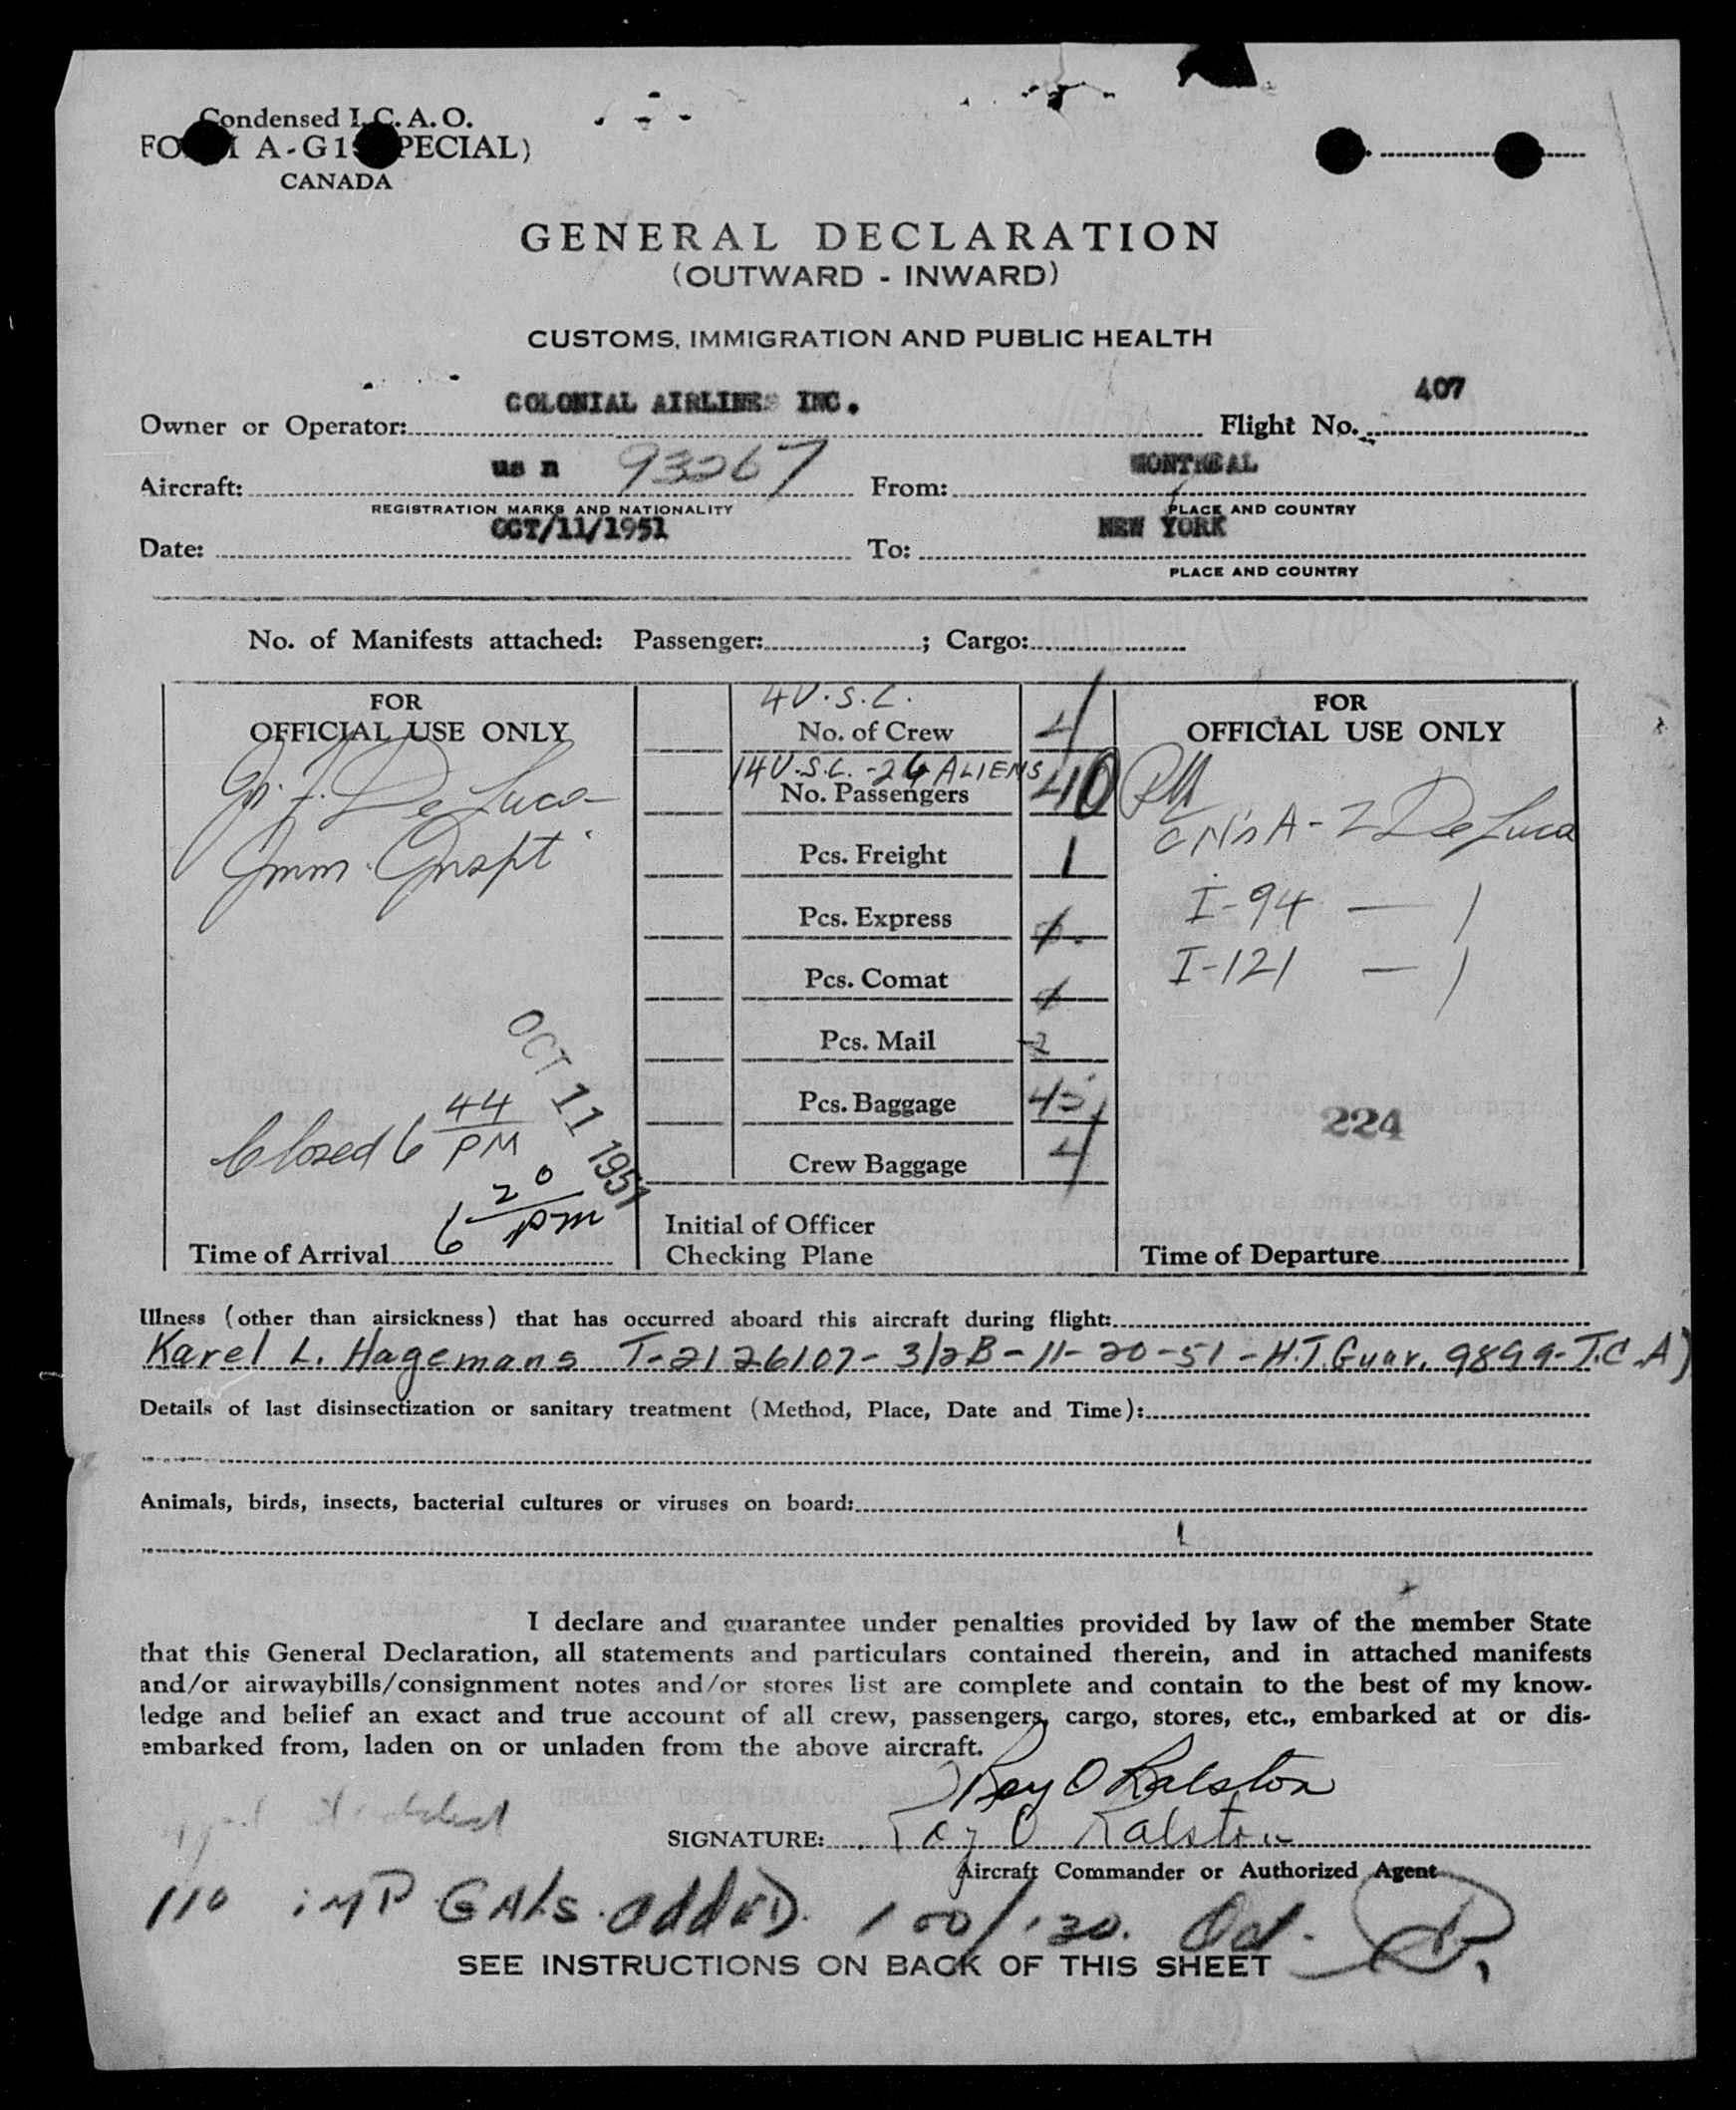 Condensed I.C.A.O.
FORM A-G1 (SPECIAL)
CANADA
GENERAL DECLARATION
(OUTWARD - INWARD)
CUSTOMS, IMMIGRATION AND PUBLIC HEALTH
Owner or Operator: COLONIAL AIRLINES INC. Flight No. 407
Aircraft: us n 93267 From: MONTREAL
REGISTRATION MARKS AND NATIONALITY PLACE AND COUNTRY
Date: OCT/11/1951 To: NEW YORK
PLACE AND COUNTRY
No. of Manifests attached: Passenger: ; Cargo:
FOR
OFFICIAL USE ONLY
De Luca
Imm. Inspt.
OCT 11 1951
Closed 6 44 PM
6 20 pm
Time of Arrival
4 U.S.C.
No. of Crew 4
14 U.S.C. - 26 ALIENS
No. Passengers 40
Pcs. Freight 1
Pcs. Express
Pcs. Comat
Pcs. Mail 2
Pcs. Baggage 45
Crew Baggage 4
Initial of Officer
Checking Plane
FOR
OFFICIAL USE ONLY
A-Z De Luca
I-94 — 1
I-121 — 1
224
Time of Departure
Illness (other than airsickness) that has occurred aboard this aircraft during flight:
Karel L. Hagemans T-2126107- 3(2B-11-20-51-H.T. Guar. 9899-T.C.A)
Details of last disinsectization or sanitary treatment (Method, Place, Date and Time):
Animals, birds, insects, bacterial cultures or viruses on board:
I declare and guarantee under penalties provided by law of the member State
that this General Declaration, all statements and particulars contained therein, and in attached manifests
and/or airwaybills/consignment notes and/or stores list are complete and contain to the best of my know-
ledge and belief an exact and true account of all crew, passengers, cargo, stores, etc., embarked at or dis-
embarked from, laden on or unladen from the above aircraft.
Ray O Ralston
SIGNATURE: Ray O Ralston
Aircraft Commander or Authorized Agent
110 IMP GALS. added. 100/130. Oct.
SEE INSTRUCTIONS ON BACK OF THIS SHEET